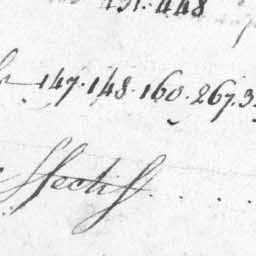 431. 448
147. 148. 160. 267. 3
ffectif . . .